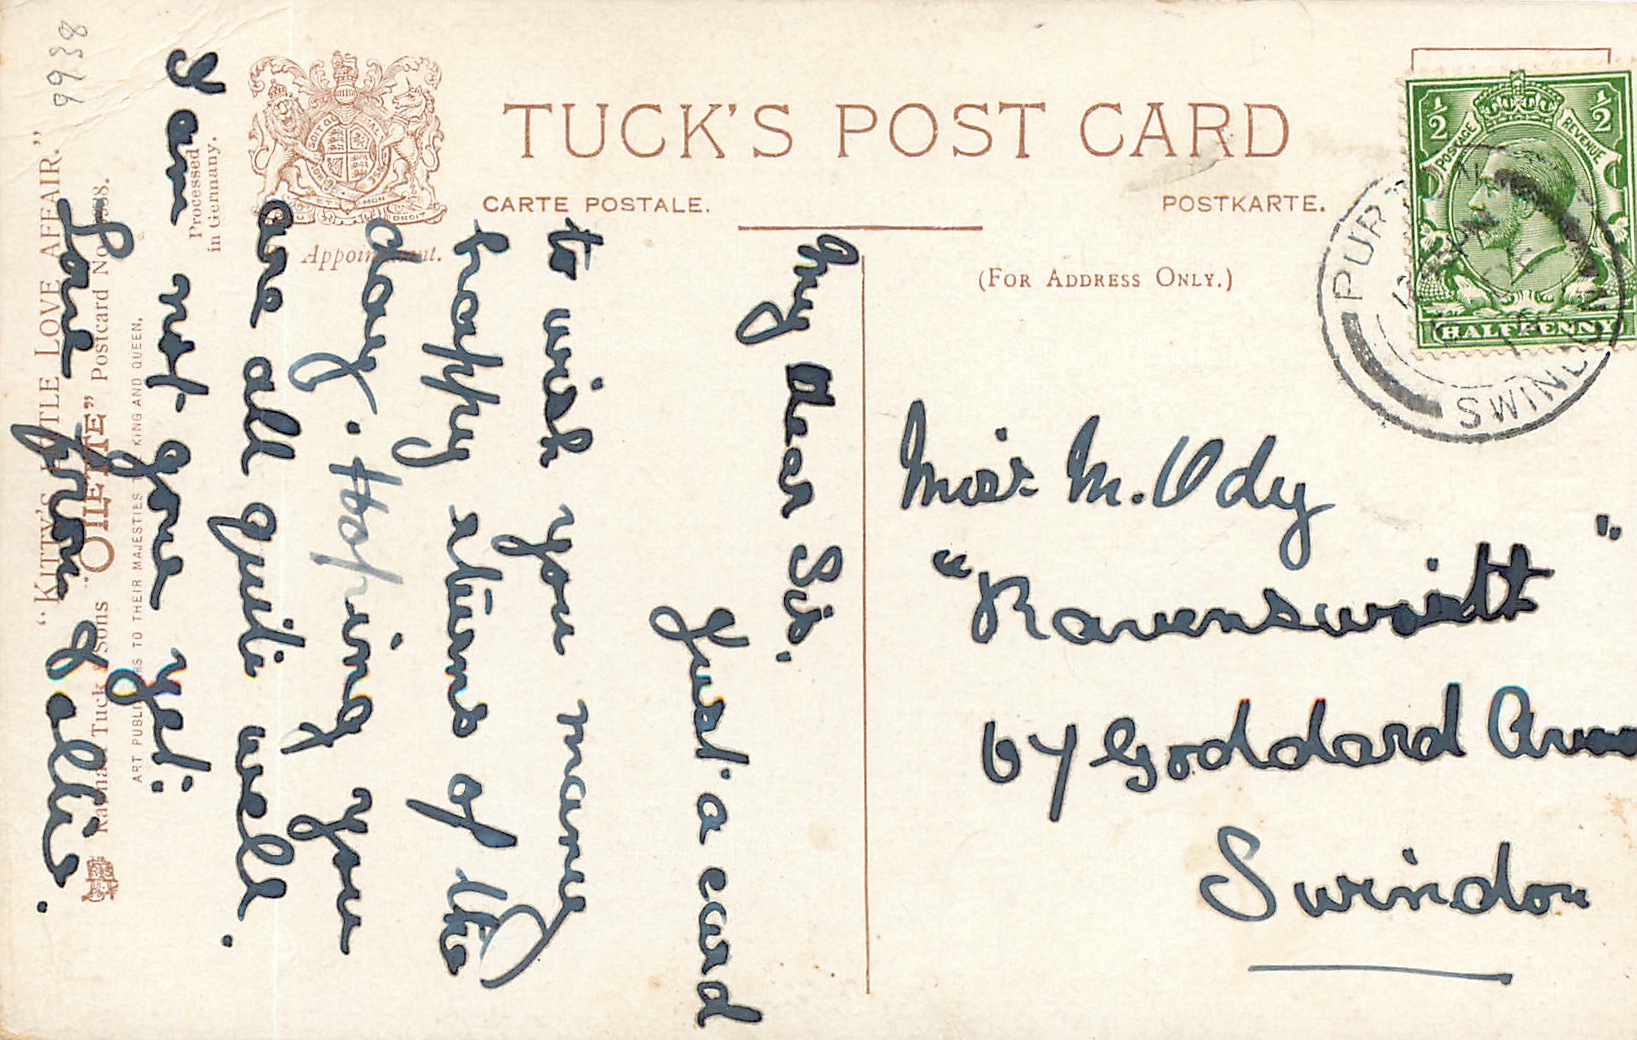 TUCK'S POST CARD
CARTE POSTALE.
POSTKARTE.
(FOR ADDRESS ONLY.)
½ ½
POSTAGE REVENUE
HALFPENNY
SWINDON
Miss M. Ody
"Ravenswiott"
67 Goddard
Swindon
My Dear Sis.
Just a card
to wish you many
happy returns of the
day. Hoping you
are all quite well.
I am not gone yet.
Love from &
9938
Processed
in Germany.
"KITTY'S LITTLE LOVE AFFAIR."
Raphael Tuck & Sons "OILETTE" Postcard No. 9938.
ART PUBLISHERS TO THEIR MAJESTIES KING AND QUEEN.